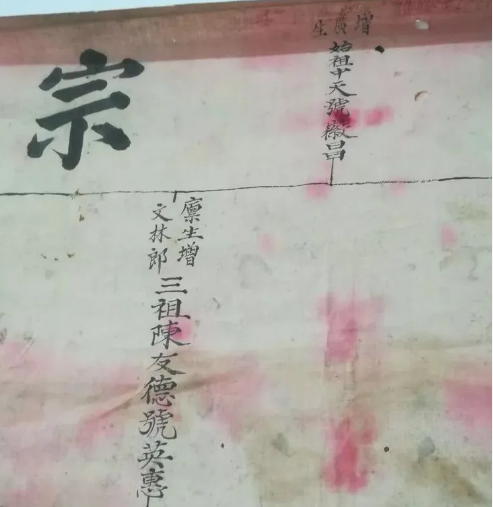 宗
增貢生
始祖十天號徽昌
廪生增
文林郎
三祖陳友德號英惠